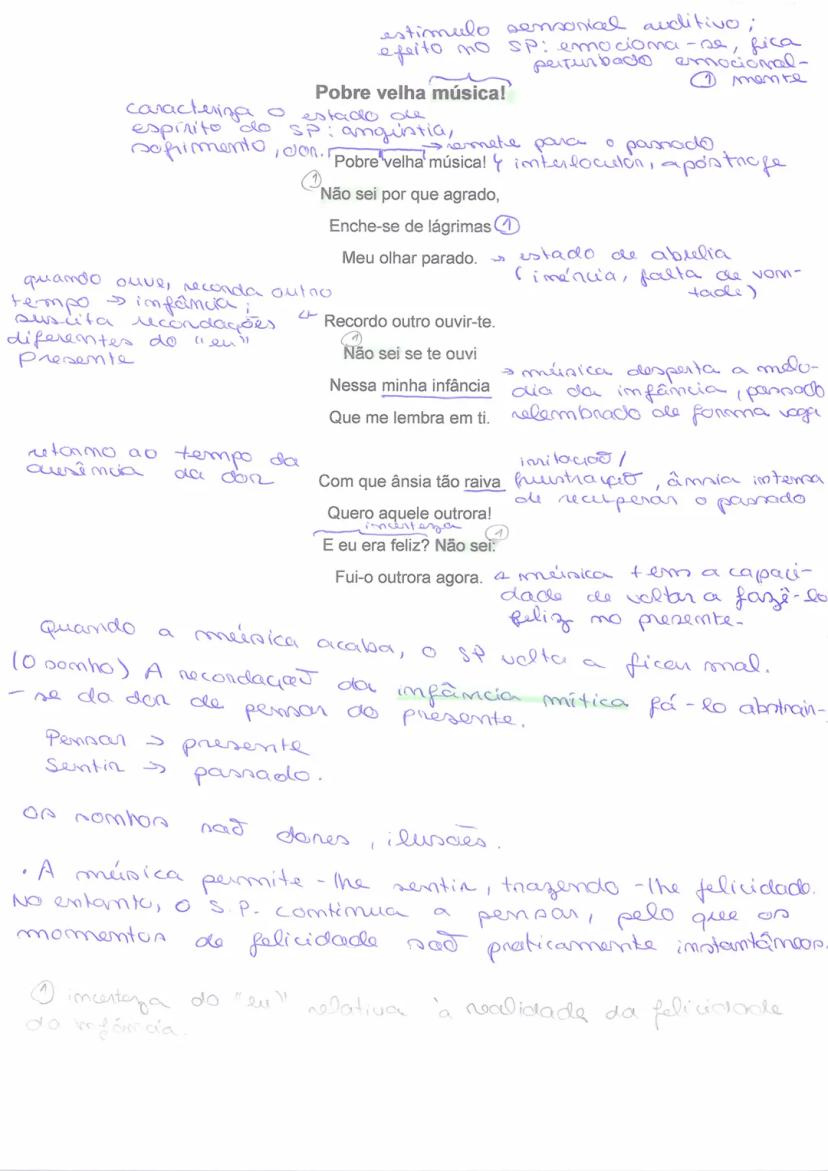 estimulo sensorial auditivo;
efeito no SP: emociona-se, fica
perturbado emocional-
① mente
Pobre velha música!
caracteriza o estado de
espírito do SP: angústia,
sofrimento, dor.
→ remete para o passado
Pobre velha música! interlocutor, apóstrofe
① Não sei por que agrado,
Enche-se de lágrimas ①
Meu olhar parado. → estado de abulia
(inércia, falta de von-
tade)
quando ouve, recorda outro
tempo → infância;
suscita recordações
diferentes do "eu"
Presente
Recordo outro ouvir-te.
①
Não sei se te ouvi
Nessa minha infância
Que me lembra em ti.
→ música desperta a melo-
dia da infância, passado
relembrado de forma vaga
retorno ao tempo da
ausência da dor
Com que ânsia tão raiva
irritação/
frustração, ânsia intensa
de recuperar o passado
Quero aquele outrora!
incerteza ①
E eu era feliz? Não sei:
Fui-o outrora agora.
música tem a capaci-
dade de voltar a fazê-lo
feliz no presente.
Quando a música acaba, o SP volta a ficar mal.
(O sonho) A recordação da infância mítica fá-lo abstrair-
-se da dor de pensar do presente.
Pensar → presente
Sentir → passado.
Os sonhos são dores, ilusões.
· A música permite-lhe sentir, trazendo-lhe felicidade.
No entanto, o S.P. continua a pensar, pelo que os
momentos de felicidade são praticamente instantâneos.
① incerteza do "eu" relativa à realidade da felicidade
da infância.